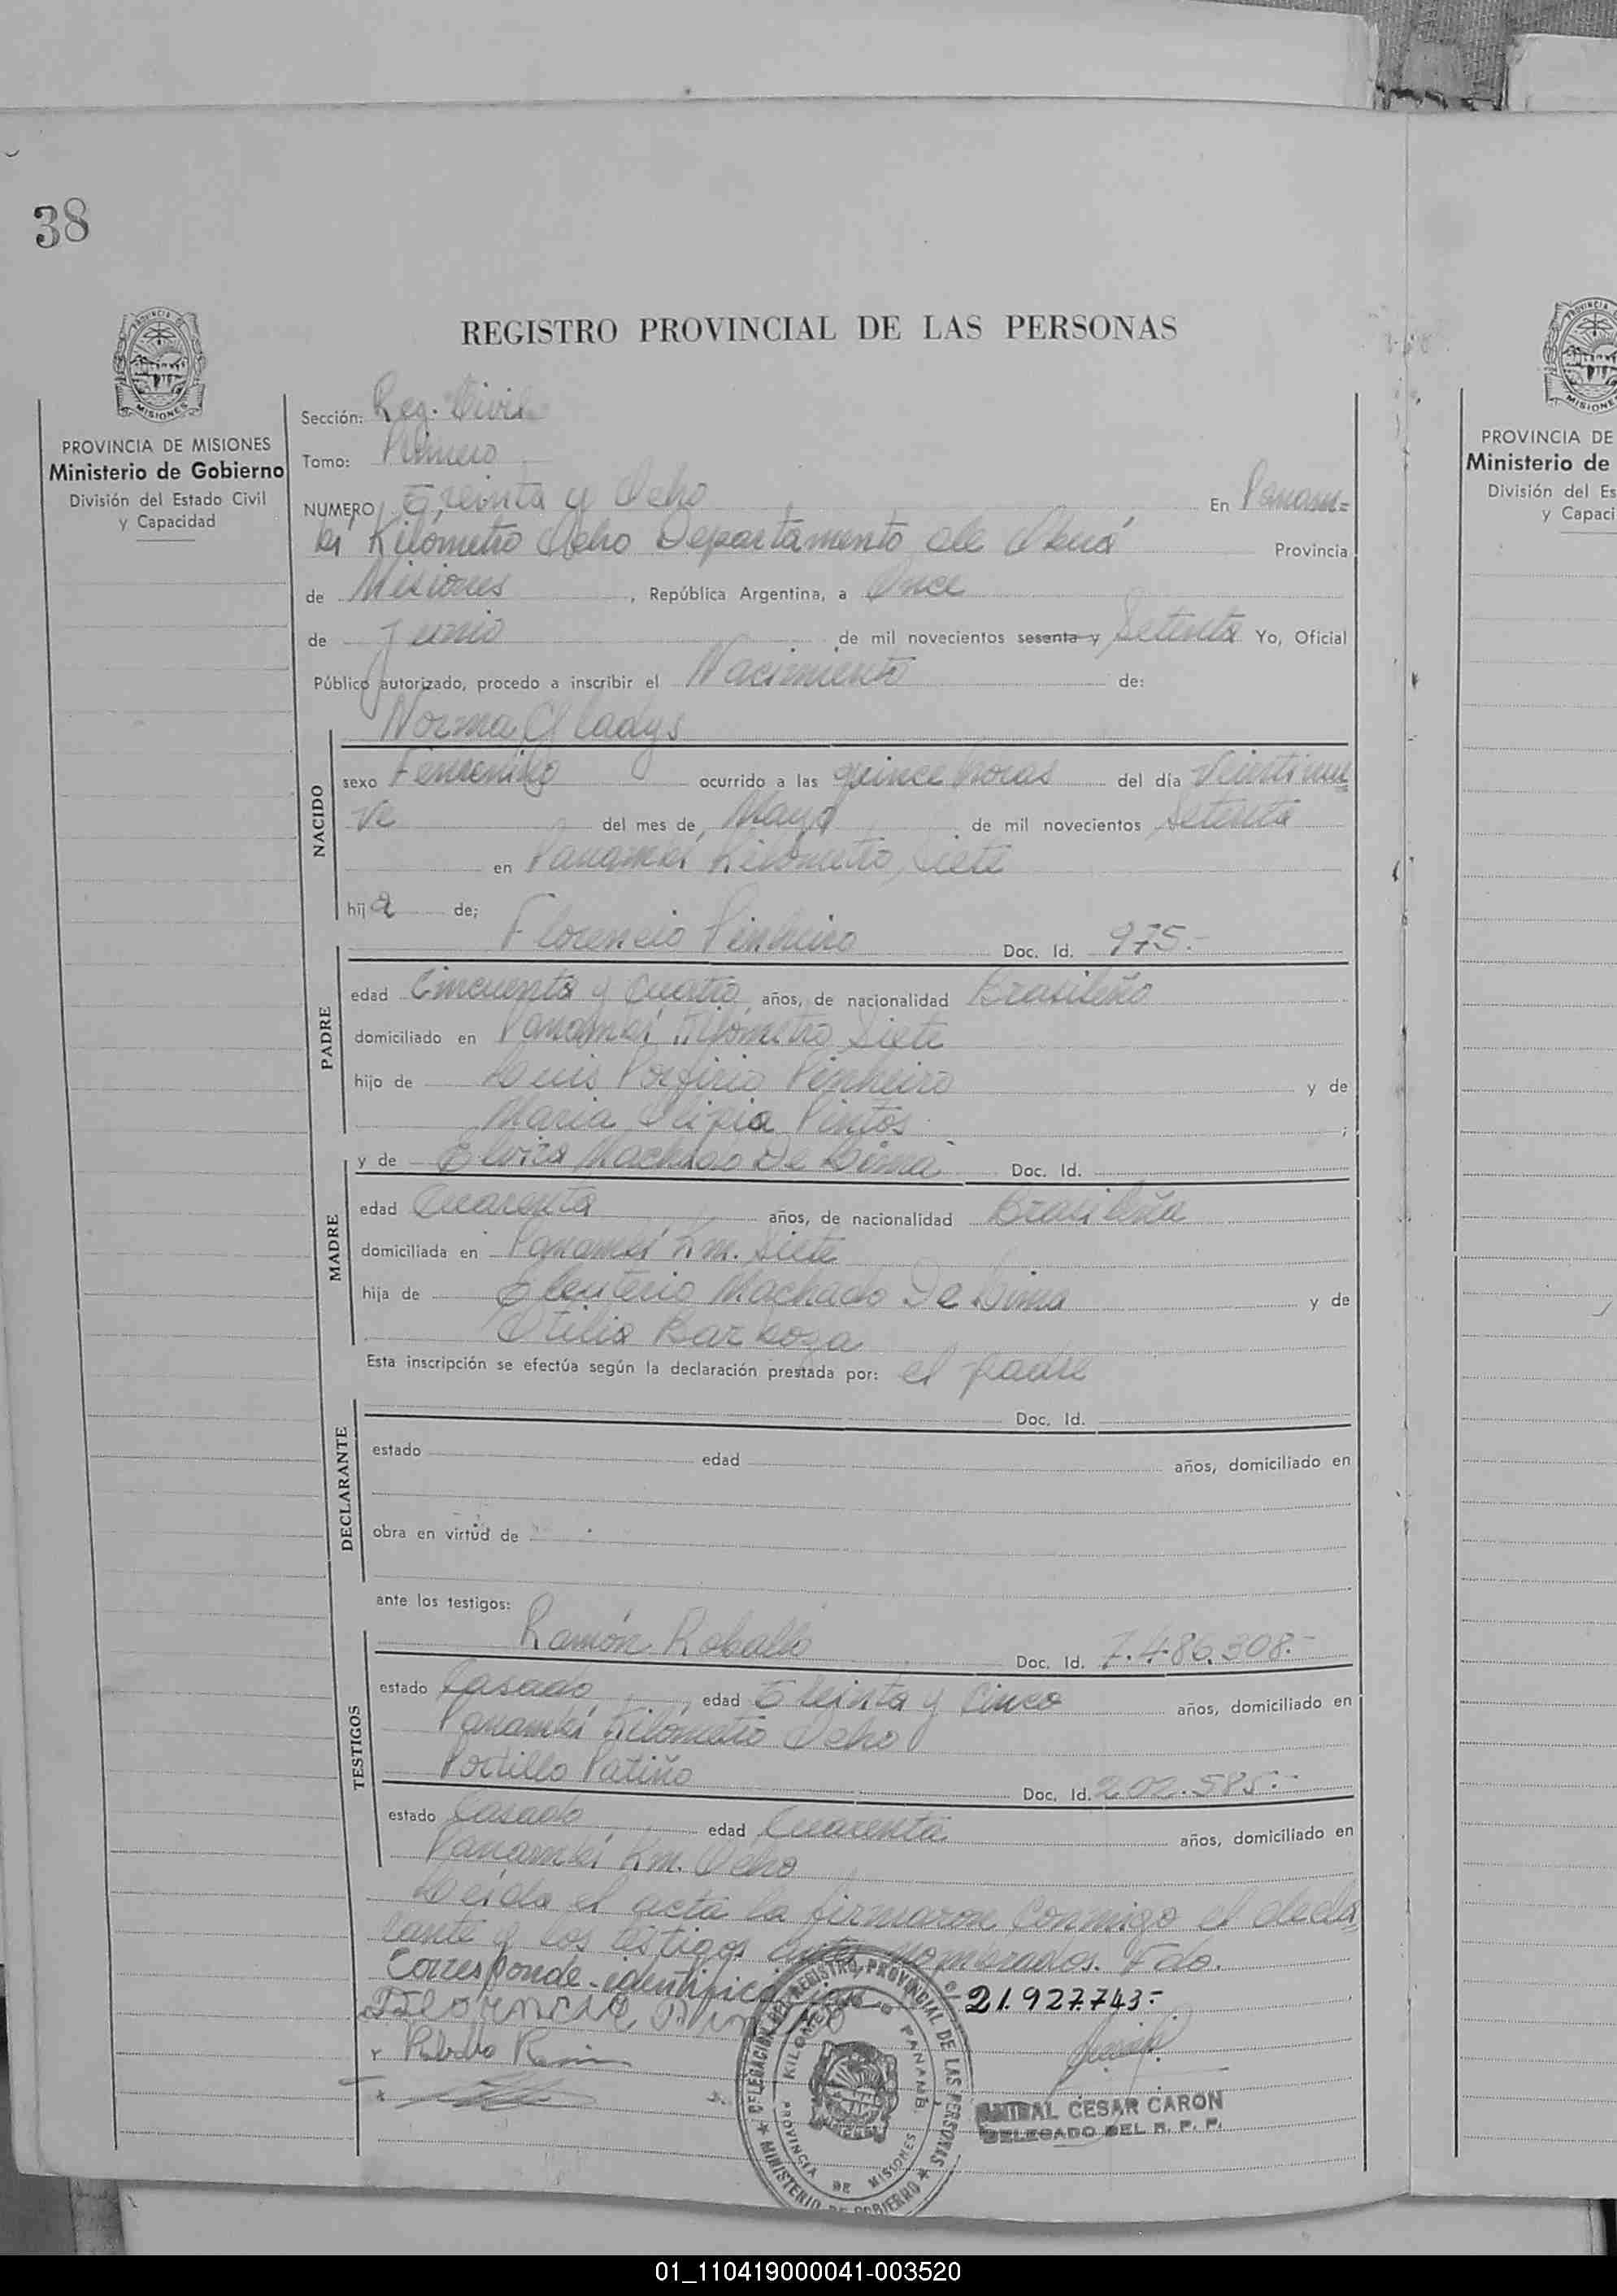 38
REGISTRO PROVINCIAL DE LAS PERSONAS
PROVINCIA DE MISIONES
MISIONES
PROVINCIA DE MISIONES
Ministerio de Gobierno
División del Estado Civil
y Capacidad
Sección: Reg. Civil
Tomo: Primero
NUMERO Treinta y Ocho En Panam=
bí Kilómetro Ocho Departamento de Oberá Provincia
de Misiones, República Argentina, a Once
de Junio de mil novecientos sesenta y Setenta Yo, Oficial
Público autorizado, procedo a inscribir el Nacimiento de:
Norma Gladys
NACIDO
sexo Femenino ocurrido a las quince horas del día Veintinue
ve del mes de Mayo de mil novecientos Setenta
en Panambí Kilómetro Siete
hija de;
Florencio Pinheiro Doc. Id. 975.-
PADRE
edad Cincuenta y Cuatro años, de nacionalidad Brasileño
domiciliado en Panambí Kilómetro Siete
hijo de Luis Porfirio Pinheiro y de
Maria Pintos;
y de Elvira Machado De Lima Doc. Id.
MADRE
edad Cuarenta años, de nacionalidad Brasileña
domiciliada en Panambí Km. Siete
hija de Eleuterio Machado De Lima y de
Otilia Barboza
Esta inscripción se efectúa según la declaración prestada por: el padre
Doc. Id.
DECLARANTE
estado edad años, domiciliado en
obra en virtud de
ante los testigos:
Ramón Roballo Doc. Id. 7.486.308.-
TESTIGOS
estado Casado edad Treinta y Cinco años, domiciliado en
Panambí Kilómetro Ocho
Portillo Patiño Doc. Id. 202.585.-
estado Casado edad Cuarenta años, domiciliado en
Panambí Km. Ocho
Leida el acta la firmaron conmigo el decla
rante y los testigos antes nombrados. Fdo.
Corresponde identificación 21.927.743.-
Roballo Ramón
DELEGACION DEL REGISTRO PROVINCIAL DE LAS PERSONAS
MINISTERIO DE GOBIERNO
KILOMETRO 8 PANAMBI
PROVINCIA DE MISIONES
ANIBAL CESAR CARON
DELEGADO DEL R. P. P.
PROVINCIA DE
Ministerio de
División del Es
y Capaci
01_110419000041-003520